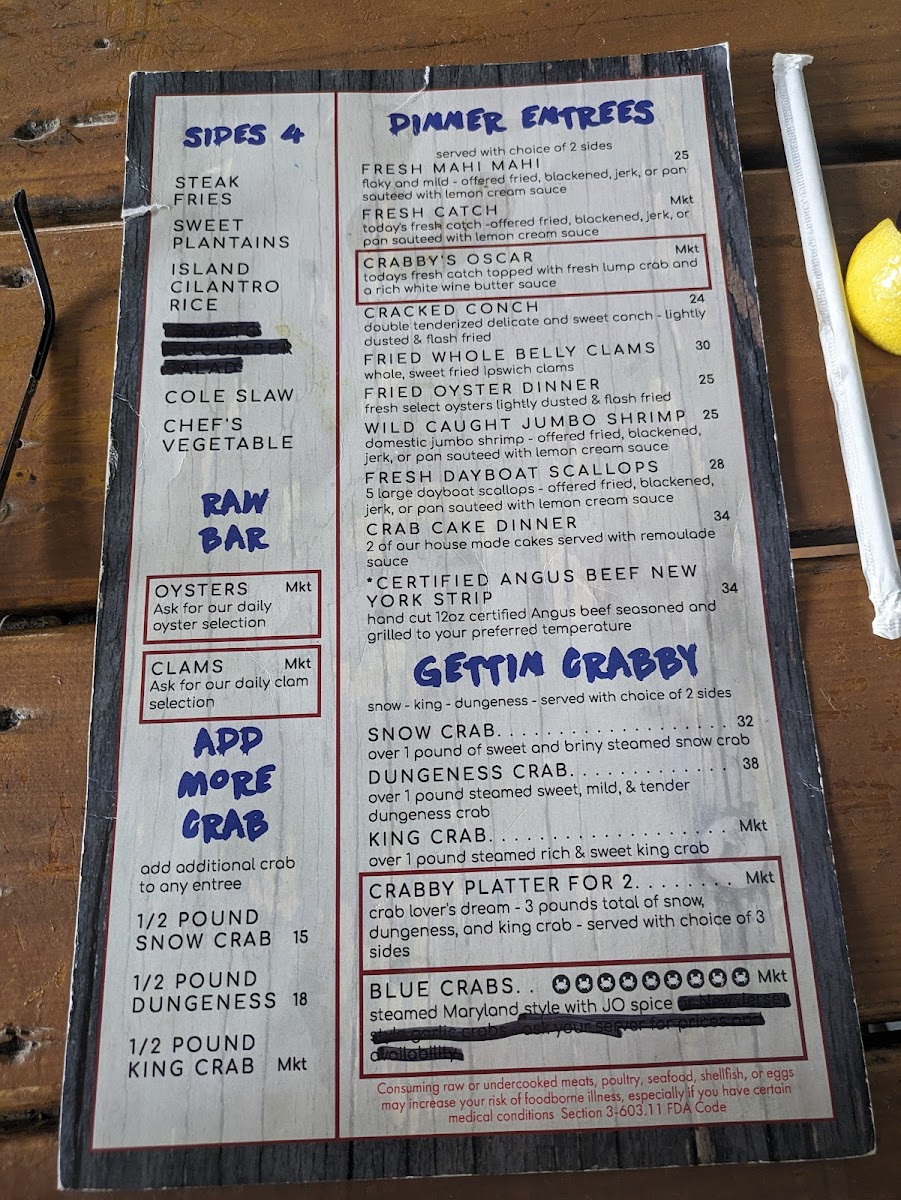 SIDES 4
STEAK
FRIES
SWEET
PLANTAINS
ISLAND
CILANTRO
RICE
COLE SLAW
CHEF'S
VEGETABLE
RAW
BAR
OYSTERS Mkt
Ask for our daily
oyster selection
CLAMS Mkt
Ask for our daily clam
selection
ADD
MORE
CRAB
add additional crab
to any entree
1/2 POUND
SNOW CRAB 15
1/2 POUND
DUNGENESS 18
1/2 POUND
KING CRAB Mkt
DINNER ENTREES
served with choice of 2 sides
FRESH MAHI MAHI 25
flaky and mild - offered fried, blackened, jerk, or pan
sauteed with lemon cream sauce
FRESH CATCH Mkt
today's fresh catch -offered fried, blackened, jerk, or
pan sauteed with lemon cream sauce
CRABBY'S OSCAR Mkt
todays fresh catch topped with fresh lump crab and
a rich white wine butter sauce
CRACKED CONCH 24
double tenderized delicate and sweet conch - lightly
dusted & flash fried
FRIED WHOLE BELLY CLAMS 30
whole, sweet fried ipswich clams
FRIED OYSTER DINNER 25
fresh select oysters lightly dusted & flash fried
WILD CAUGHT JUMBO SHRIMP 25
domestic jumbo shrimp - offered fried, blackened,
jerk, or pan sauteed with lemon cream sauce
FRESH DAYBOAT SCALLOPS 28
5 large dayboat scallops - offered fried, blackened,
jerk, or pan sauteed with lemon cream sauce
CRAB CAKE DINNER 34
2 of our house made cakes served with remoulade
sauce
*CERTIFIED ANGUS BEEF NEW
YORK STRIP 34
hand cut 12oz certified Angus beef seasoned and
grilled to your preferred temperature
GETTIN CRABBY
snow - king - dungeness - served with choice of 2 sides
SNOW CRAB. . . . . . . . . . . . . . . . . . . . 32
over 1 pound of sweet and briny steamed snow crab
DUNGENESS CRAB. . . . . . . . . . . . . . 38
over 1 pound steamed sweet, mild, & tender
dungeness crab
KING CRAB. . . . . . . . . . . . . . . . . . . . . Mkt
over 1 pound steamed rich & sweet king crab
CRABBY PLATTER FOR 2. . . . . . . . Mkt
crab lover's dream - 3 pounds total of snow,
dungeness, and king crab - served with choice of 3
sides
BLUE CRABS. . Mkt
steamed Maryland style with JO spice or New Jersey
style garlic crabs - ask your server for prices and
availability
Consuming raw or undercooked meats, poultry, seafood, shellfish, or eggs
may increase your risk of foodborne illness, especially if you have certain
medical conditions Section 3-603.11 FDA Code